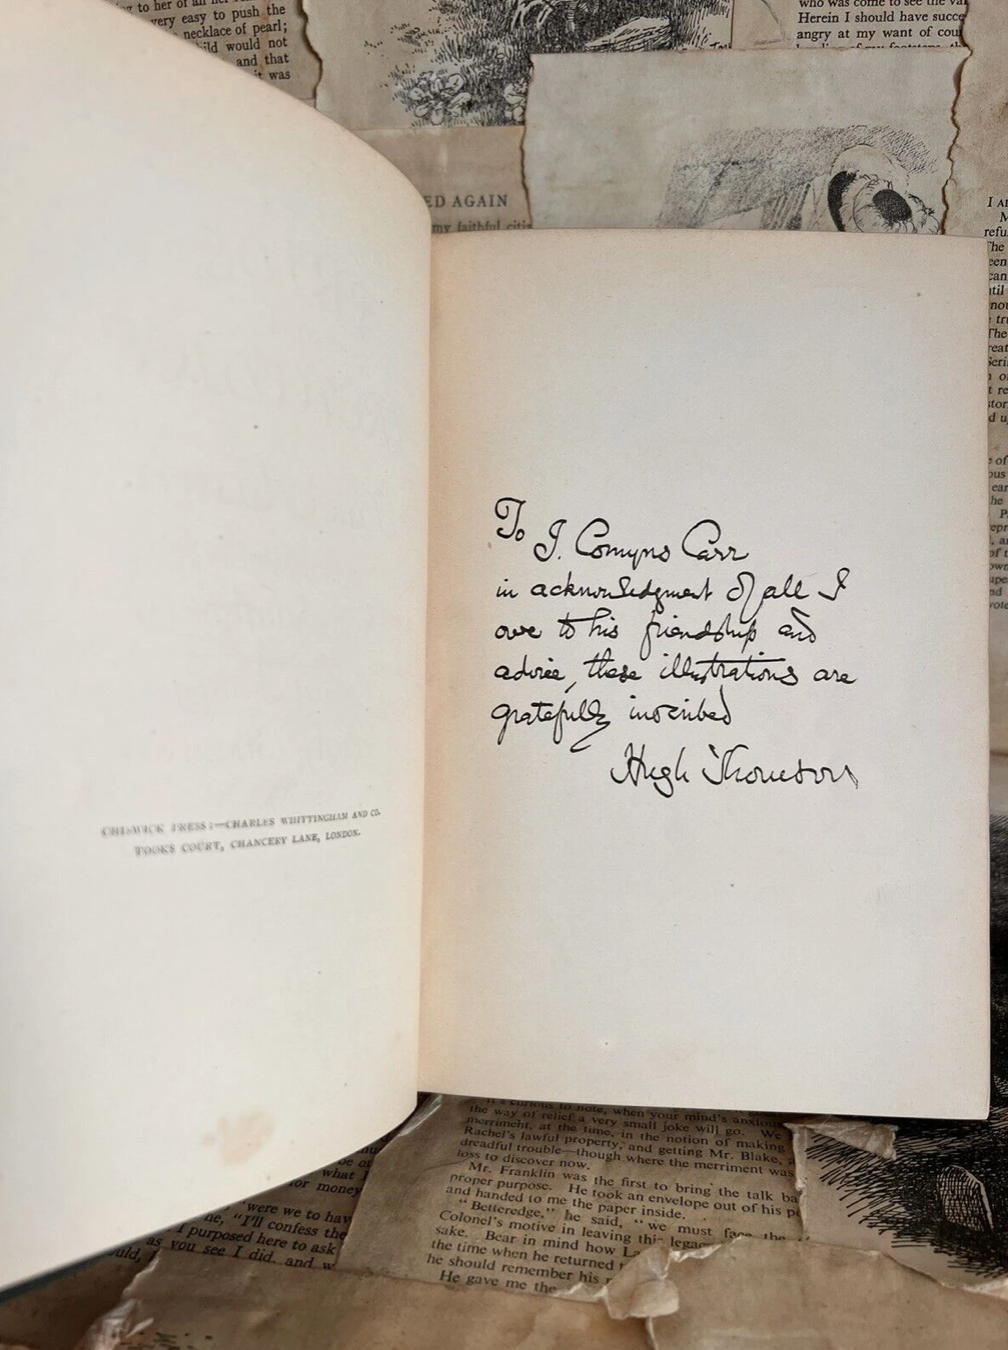 very easy to push the
necklace of pearl;
would not
and that
it was
who was come to see the
Herein I should have
angry at my want of
ED AGAIN
my faithful
To
J. Comyns Carr
in acknowledgment of all I
owe to his friendship and
advice, these illustrations are
gratefully inscribed
Hugh Thomson
CHISWICK PRESS:—CHARLES WHITTINGHAM AND CO.
TOOKS COURT, CHANCERY LANE, LONDON.
It's curious to note, when your mind's anxious
the way of relief a very small joke will go. We
merriment, at the time, in the notion of making
Rachel's lawful property, and getting Mr. Blake,
dreadful trouble—though where the merriment was
loss to discover now.
Mr. Franklin was the first to bring the talk
proper purpose. He took an envelope out of his
and handed to me the paper inside.
"Betteredge," he said, "we must face the
Colonel's motive in leaving this
sake. Bear in mind how
the time when he returned
he should remember his
He gave me the
what I
for money
were we to
"I'll confess the
I purposed here to ask
as you see I did, and